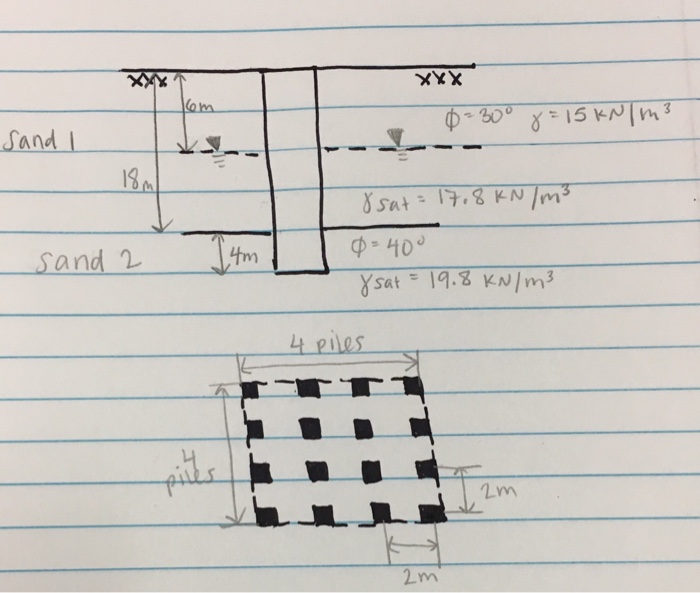 xxx xxx
6m
ϕ=30° γ=15 KN/m³
Sand 1
18m
γsat = 17.8 KN/m³
Sand 2
4m
ϕ=40°
γsat = 19.8 KN/m³
4 piles
4
piles
2m
2m